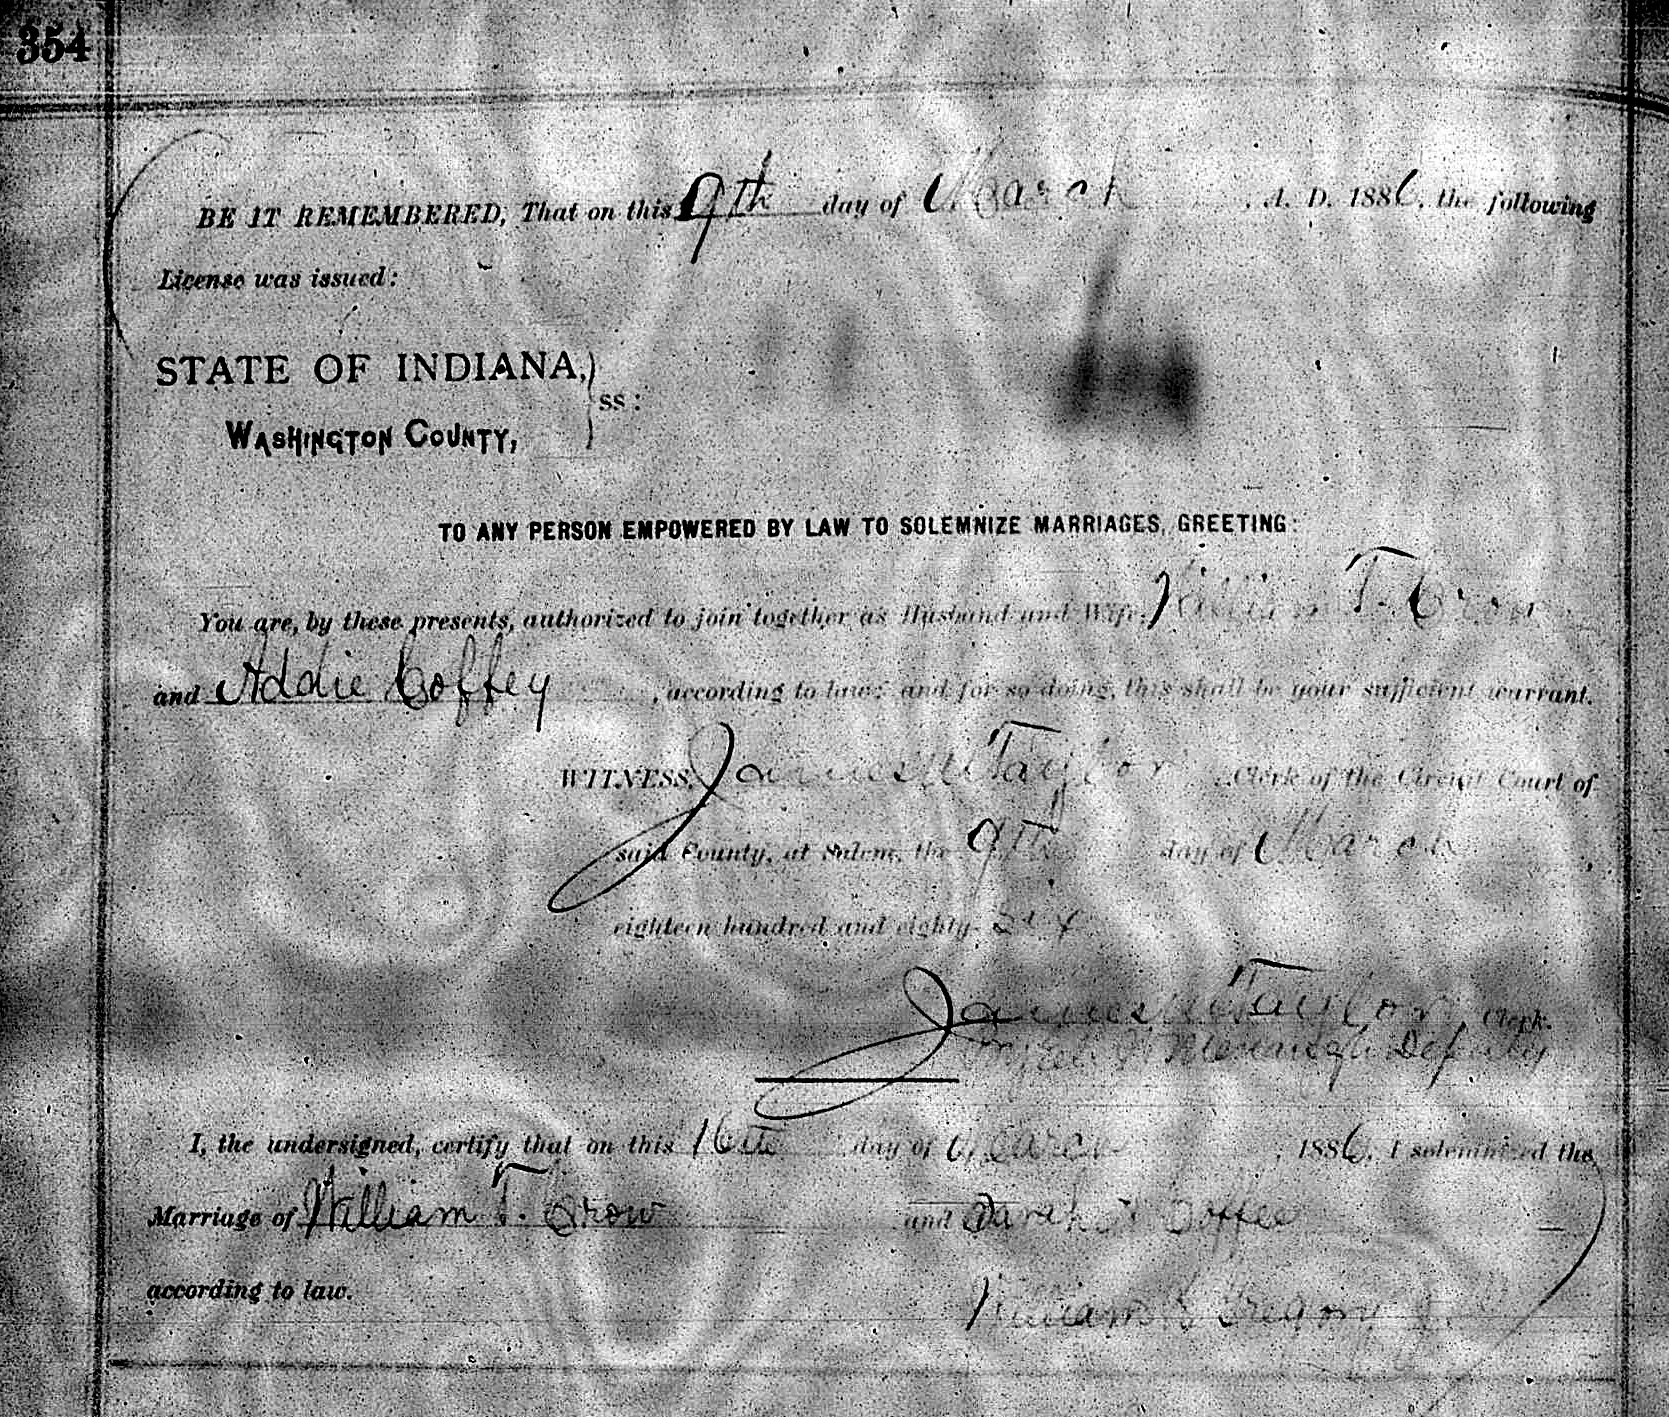 354
BE IT REMEMBERED, That on this 9th day of March, A. D. 1886, the following
License was issued:
STATE OF INDIANA,
ss:
WASHINGTON COUNTY,
TO ANY PERSON EMPOWERED BY LAW TO SOLEMNIZE MARRIAGES, GREETING:
You are, by these presents, authorized to join together as Husband and Wife, William T. Crow
and Addie Coffey, according to law; and for so doing, this shall be your sufficient warrant.
WITNESS, James M Taylor Clerk of the Circuit Court of
said County, at Salem, the 9th day of March,
eighteen hundred and eighty-six
James M Taylor Clerk.
Deputy
I, the undersigned, certify that on this 16th day of March, 1886, I solemnized the
Marriage of William T. Crow and Coffee
according to law.
William Gregory